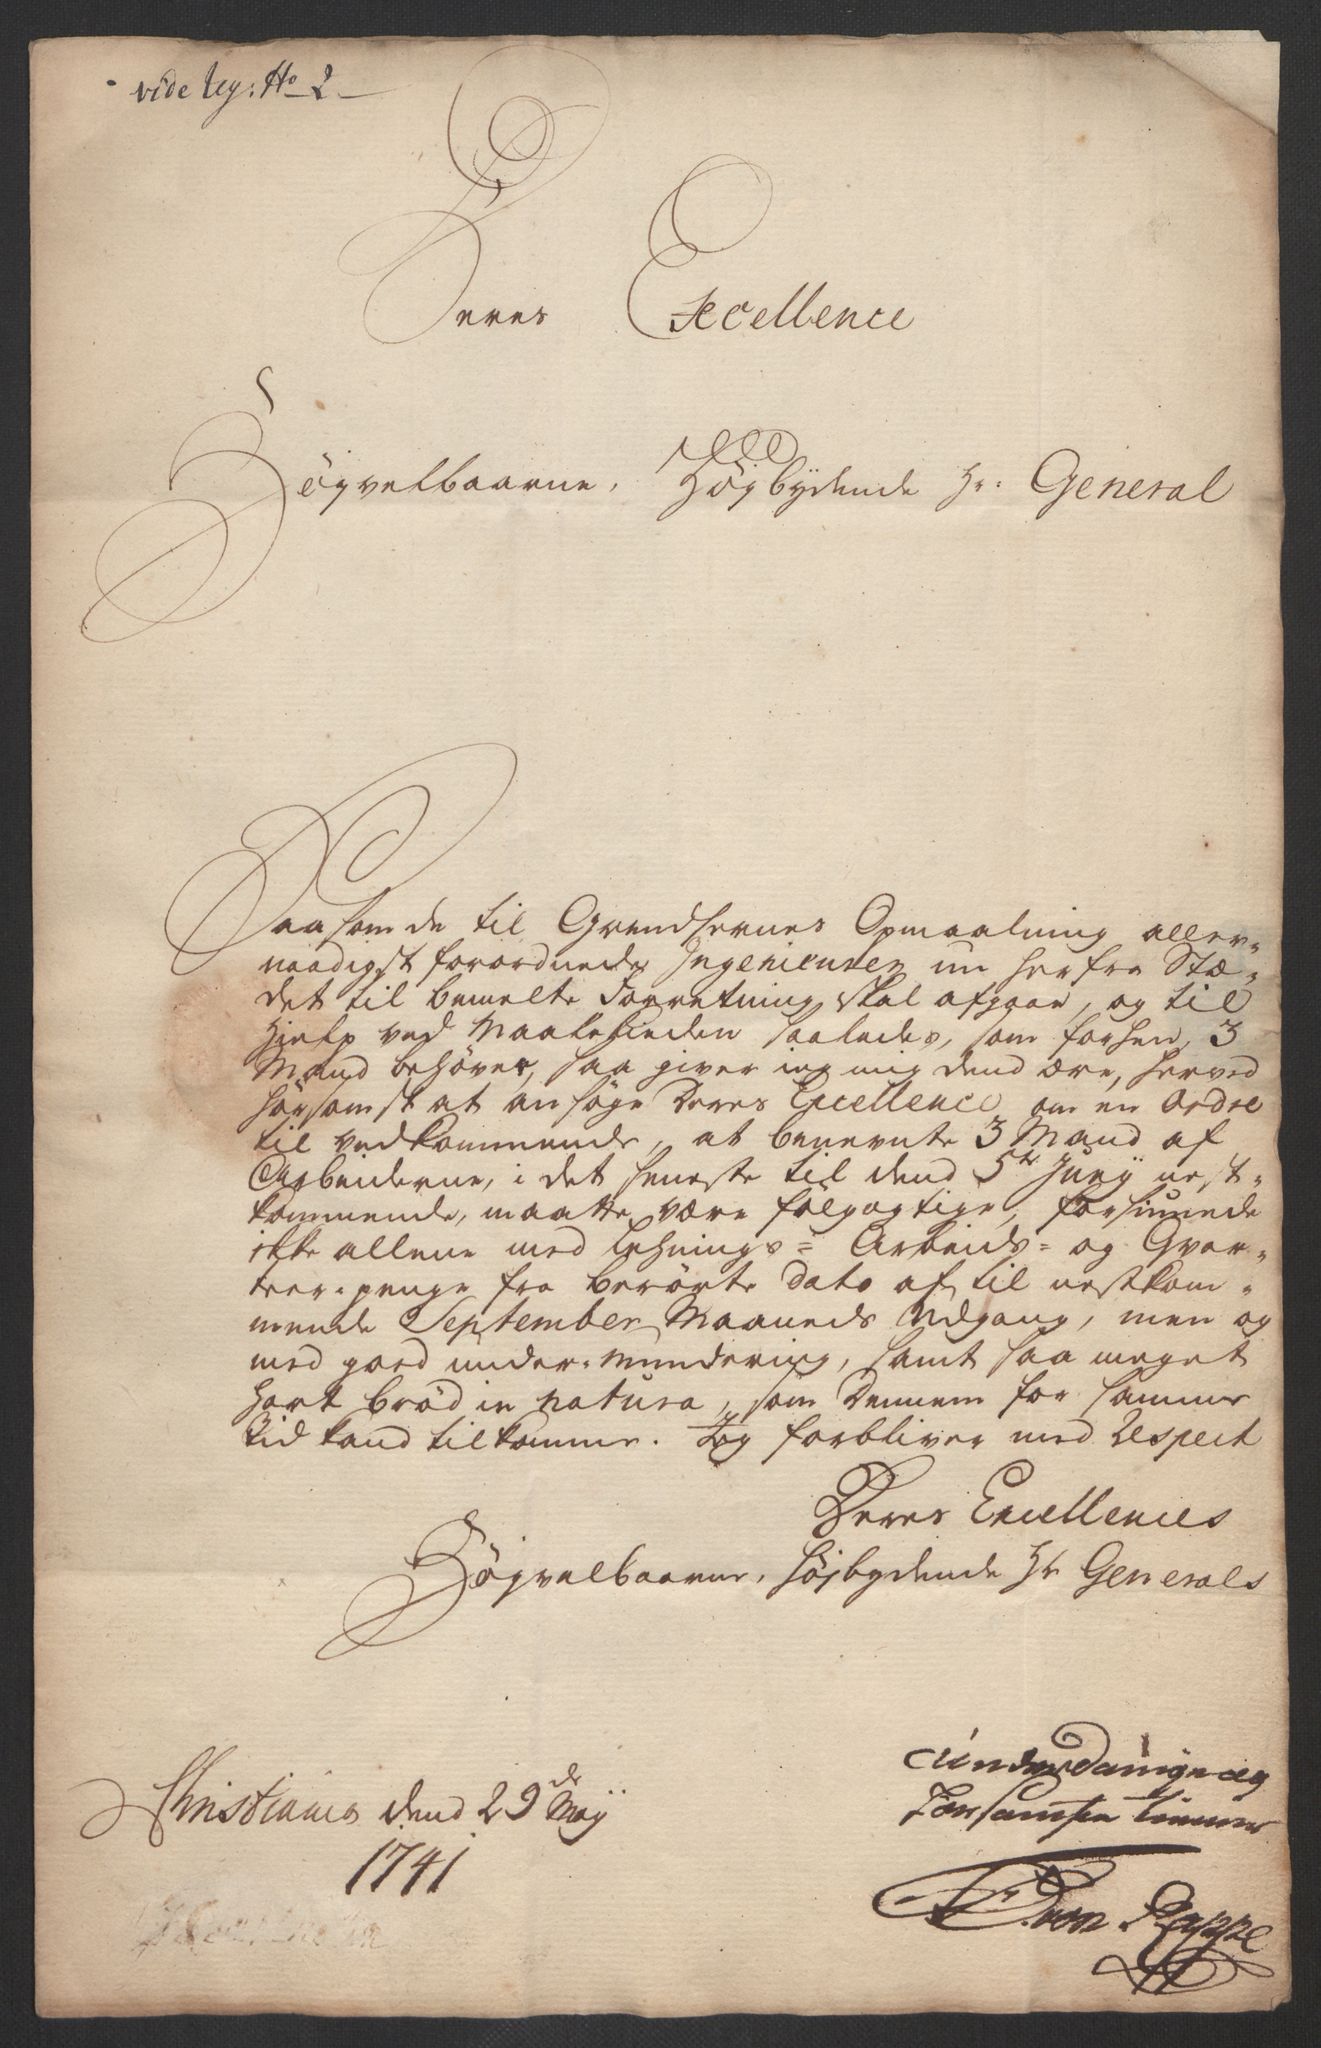 vide Reg: No 2
Deres Excellence
Højvelbaarne, Højbÿdende Hr: General
Saasom de til Grendsernes Opmaalning aller-
naadigst forordnede Ingenieurer nu herfra Stæ-
det til bemelte Forretning skal afgaae, og til
Hielp ved Maalekieden saaledes, som forhen, 3
Mand behøver, saa giver ieg mig dend ære, herved
hørsomst at ansøge Deres Excellence om en Ordre
til vedkommende, at benevnte 3 Mand af
Arbeiderne, i det seneste til dend 5te Junÿ nest-
kommende, maatte være følgagtige, forsiunede
ikke allene med Lehnings= Arbeids= og Qvar-
teer-penge fra berørte dato af til nestkom-
mende September Maaneds Udgang, men og
med goed under-mundering, samt saa meget
hart brød in natura, som dennem for samme
Tid kand tilkomme. Jeg forbliver med Respect
Deres Excellences
Højvelbaarne, højbydende Hr Generals
Christiania dend 29de Maÿ
1741
underdanige og
hørsamste tienner
von Rappe